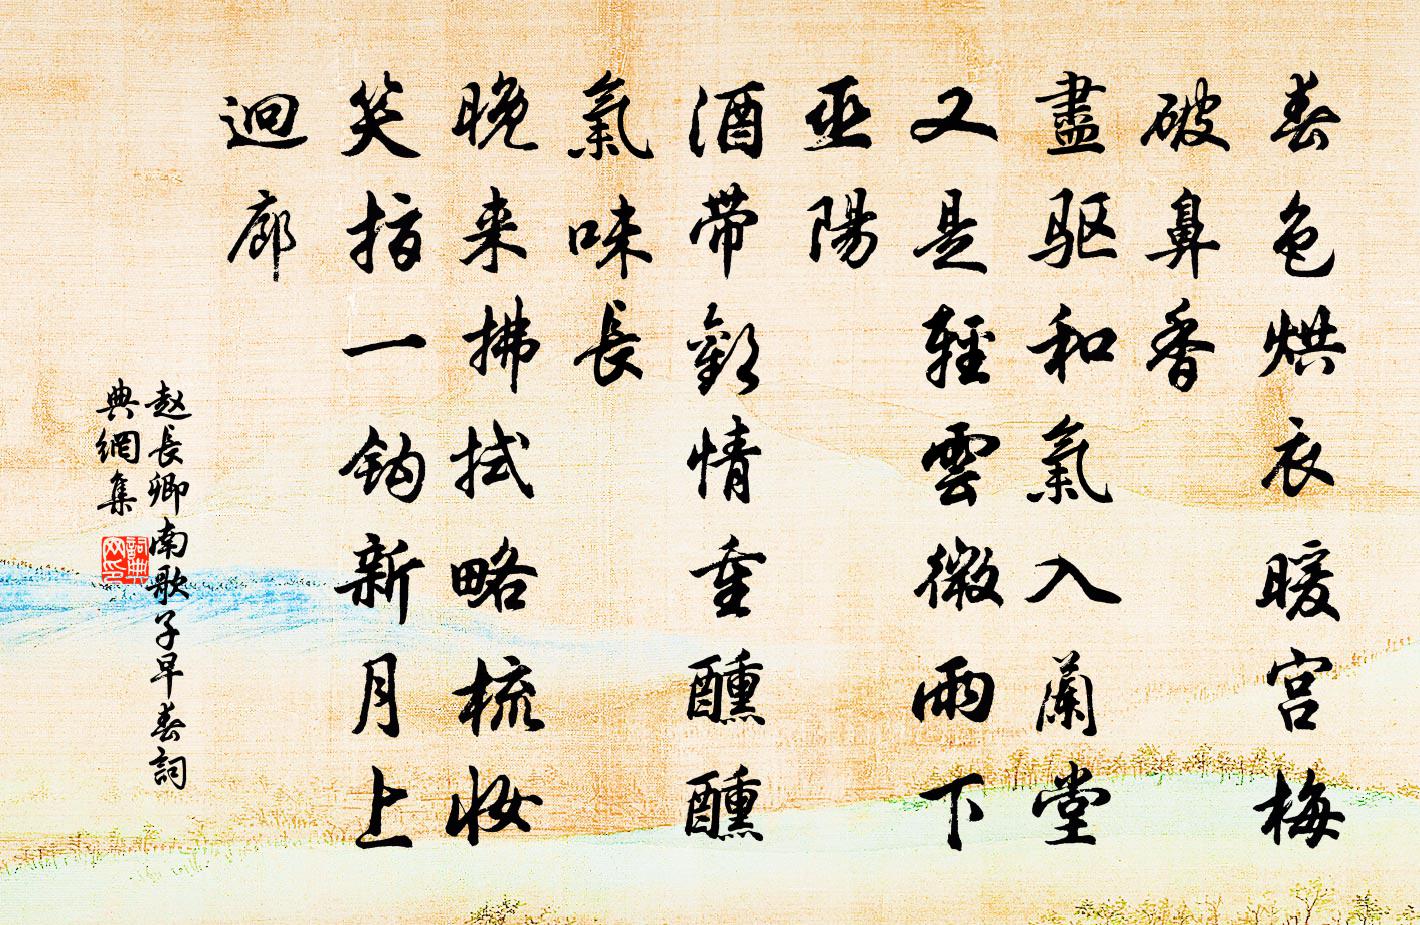 春色烘衣暖宫梅
破鼻香
盡驱和氣入蘭堂
又是輕雲微雨下
巫陽
酒帶歡情重醺醺
氣味長
晚来拂拭略梳妆
笑指一鈎新月上
迴廊
赵長卿南歌子早春詞
典網集
詞典
网印